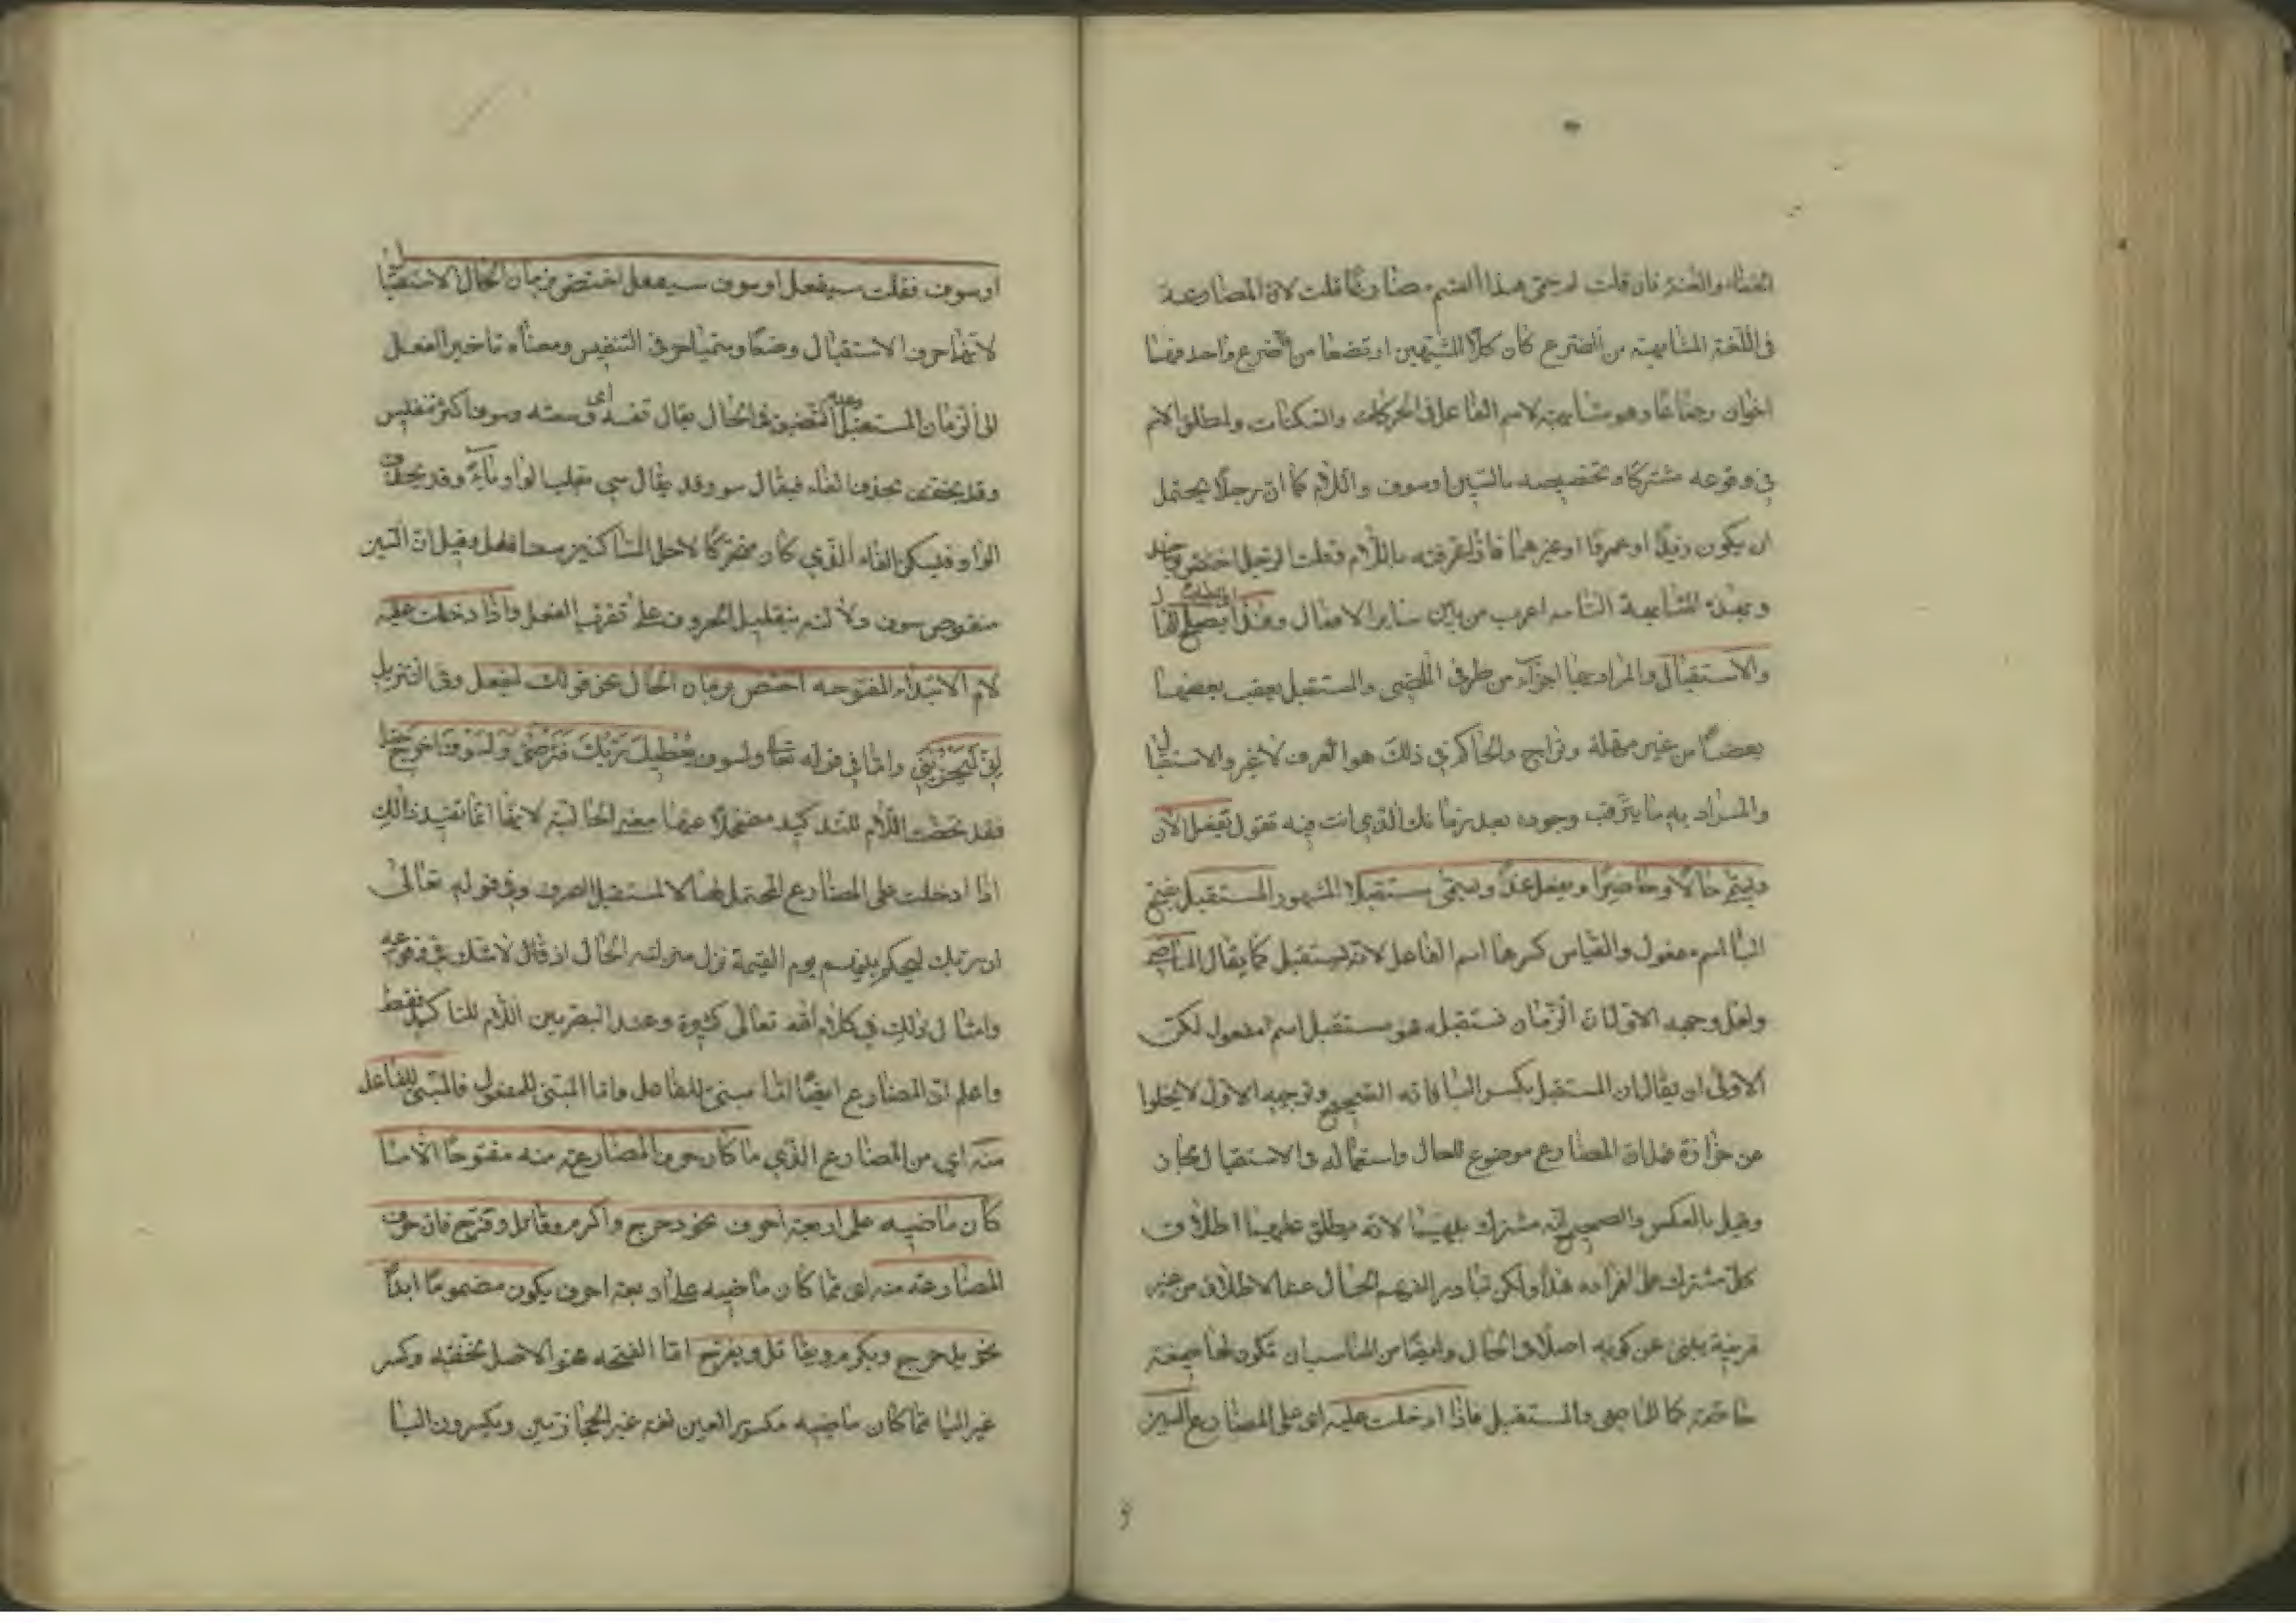 الخفاء والغنة فان قلت لم سمى هذا القسم مضارعا قلت لان المضارعة
فى اللغة المشابهة من الضرع كان كلا الشبيهين ارتضعا من ضرع واحد فهما
اخوان رضاعا وهو مشابهته لاسم الفاعل فى الحركات والسكنات ولمطلق الاسم
فى وقوعه مشتركا وتخصيصه بالسين او سوف واللام كما ان رجلا يحتمل
ان يكون زيدا او عمروا او غيرهما فاذا عرفته باللام وقلت الرجل اختص بواحد
وبهذه المشابهة التامه اعرب من بين ساير الافعال وهذا يصلح للحال
والاستقبال والمراد بها اجزاء من طرفى الماضى والمستقبل يعقب بعضها
بعضا من غير مهلة وتراخ والحاكم فى ذلك هو العرف لا غير والاستقبال
والمراد به ما يترقب وجوده بعد زمانك الذي انت فيه تقول يفعل الان
ويسمى حالا وحاضرا ويفعل غدا ويسمى مستقبلا المشهور المستقبل بفتح
البا اسم مفعول والقياس كسرها اسم الفاعل لانه يستقبل كما يقال الماضى
ولعل وجه الاول ان الزمان تستقبله فهو مستقبل اسم مفعول لكن
الاولى ان يقال ان المستقبل بكسر البا فانه الصحيح وتوجيه الاول لا يخلوا
عن حزازة قيل ان المضارع موضوع للحال واستعماله فى الاستقبال مجاز
وقيل بالعكس والصحيح انه مشترك بينهما لانه يطلق عليهما اطلاق
كل مشترك على افراده هذا ولكن تبادر الفهم الى الحال عند الاطلاق من غير
قرينة ينبئ عن كونه اصلا فى الحال وايضا من المناسب ان تكون لها صيغة
خاصة كما للماضى والمستقبل فاذا ادخلت عليه اى على المضارع السين
او سوف فقلت سيفعل او سوف سيفعل اختص بزمان الحال الاستقبال
لانهما حرفا الاستقبال وضعا وسميا حرفى التنفيس ومعناه تاخير الفعل
الى الزمان المستقبل وعدم التضييق فى الحال يقال نفسه اى وسعه وسوف اكثر تنفيس
وقد يخفف بحذف الفاء فيقال سو وقد يقال سى بقلب الواو ياء وقد يحذف
الواو فيسكن الفاء الذي كان متحركا لاجل الساكنين سف افعل وقيل ان السين
منقوص سوف ولانه بتقليل الحروف على تقريب الفعل واذا دخلت عليه
لام الابتداء المفتوحه اختص بزمان الحال نحو قولك ليفعل وفى التنزيل
انى ليحزننى واما فى قوله تعا ولسوف يعطيك ربك فترضى ولسوف اخرج حيا
فقد تمحضت اللام للتدكيد مضمحلا عنها معنى الحالية لانها انما تفيد ذالك
اذا ادخلت على المضارع المحتمل لهما لا المستقبل الصرف وفى قوله تعالى
ان ربك ليحكم بينهم يوم القيمة نزل منزلته الحال اذ قال لا شك فى وقوعه
وامثال ذلك فى كلام الله تعالى كثيرة وعند البصريين اللام للتاكيد فقط
واعلم ان المضارع ايضا اما مبنى للفاعل واما المبنى للمفعول فالمبنى للفاعل
منه اى من المضارع الذي ما كان حرف المضارعة منه مفتوحا الا ما
كان ماضيه على اربعة احرف نحو دحرج واكرم وقاتل وفرح فان حرف
المضارعة منه اى مما كان ماضيه على اربعة احرف يكون مضموما ابدا
نحو يدحرج ويكرم ويقاتل ويفرح اما الفتحه فهو الاصل لخفته وكسر
غير اليا مما كان ماضيه مكسور العين لغة غير الحجازيين ويكسرون اليا